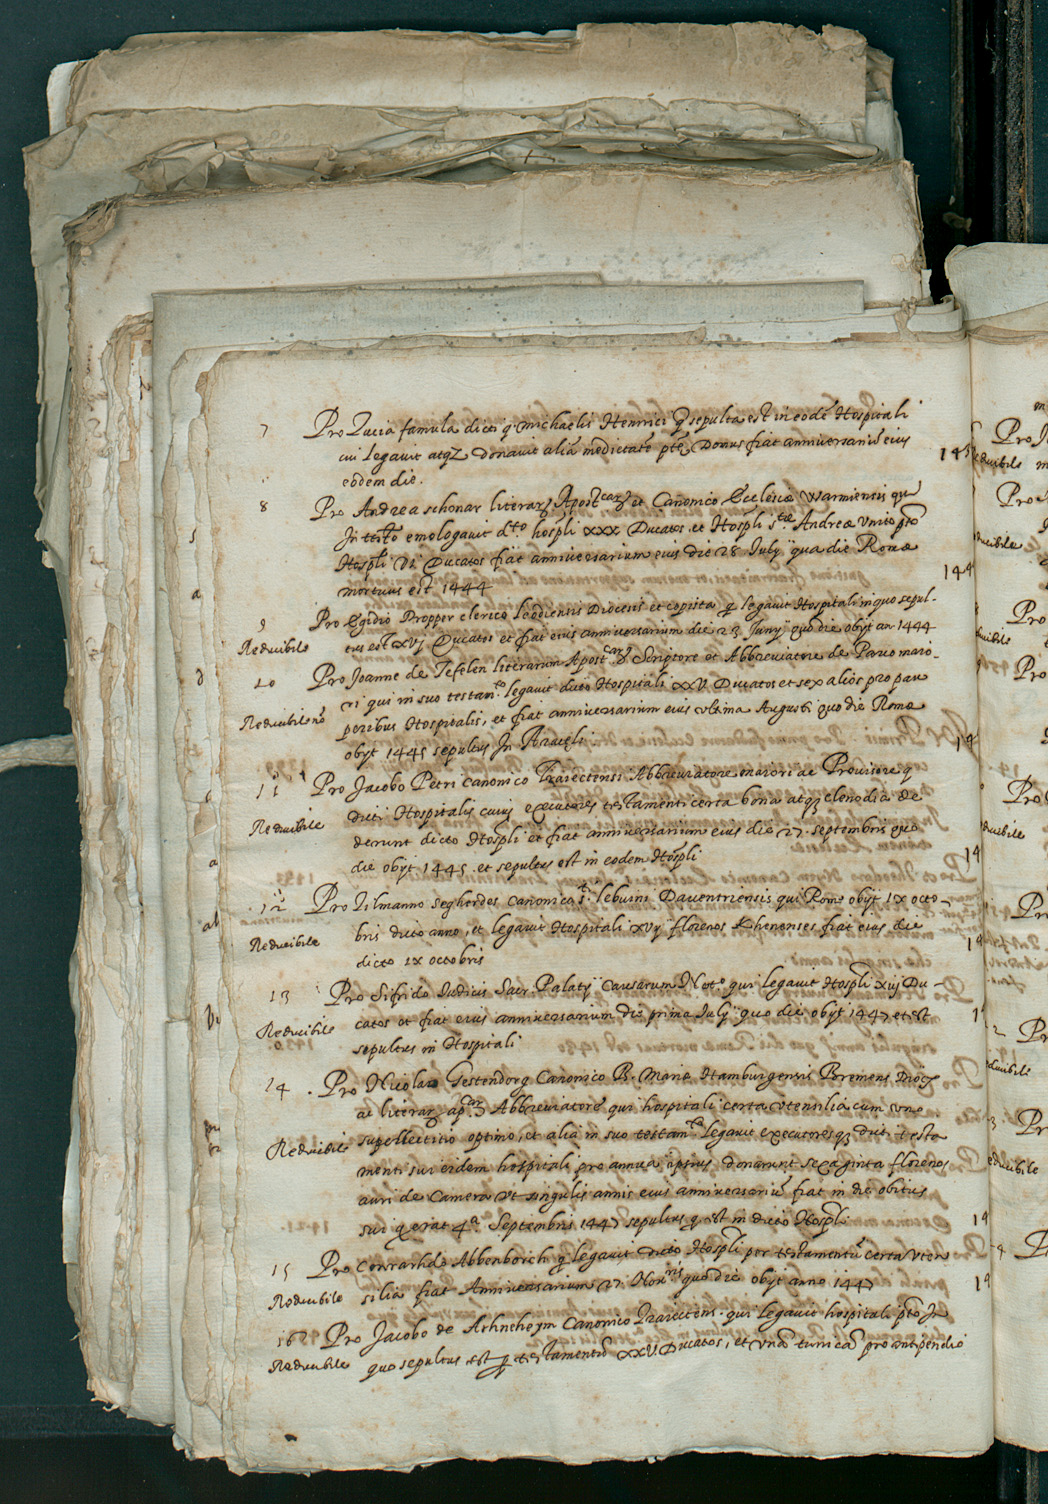 7 Pro Lucia famula dicti q. Michaelis Henrici q sepulta est in eodē Hospitali
cui legavit atqz donavit aliā medietatē ptę Domus fiat anniversariū eius
eodem die.
8 Pro Andrea schonar literarz Apostcarz et Canonico Ecclesiæ Warmiensis qui
In testto emologavit dto hospli xxx Ducatos et Hospli stæ Andreæ unito pto
Hospli vi Ducatos fiat anniversarium eius die 28 July qua die Romæ
mortuus est 1444
9 Pro Egidio Propper clerico leodiensis Diocesis et copista q legavit Hospitali in quo sepul-
Reducibile tus est xvj Ducatos et fiat eius anniversarium die 23 Junÿ quo die obijt an 1444
10 Pro Joanne de Tefelen literarum Apostcarz Scriptore et Abbreviatore de Parco maio-
Reducibile ri qui in suo testamto legavit dicto Hospitali xxv Ducatos et sex alios pro pau
peribus Hospitalis, et fiat anniversarium eius ultima Augusti quo die Romæ
obijt 1445 sepultus In Aracęli
11 Pro Jacobo Petri canonico Traiectensi Abbreviatore maiori ac Provisore q
Reducibile dicti Hospitalis cuius executores testamenti certa bona atqz clenodia de
derunt dicto Hospli et fiat anniversarium eius die 27 septembris quo
die obijt 1445 et sepultus est in eodem Hospli
12 Pro Tilmanno Segherdes canonico sti lebuini Daventriensis qui Romæ obijt IX octo-
Reducibile bris dicto anno, et legavit Hospitali xvij florenos Rhenenses fiat eius die
dicto IX octobris
13 Pro Sifrido Iudicis Sacr. Palatÿ Causarum Noto qui legavit Hospli xij Du-
Reducibile catos et fiat eius anniversarium die prima July quo die obijt 1447 et est
sepultus in Hospitali
14 Pro Nicolao Gestendorg Canonico B. Mariæ Hamburgensis Bremens Dioc
ac literarz apcarz Abbreviatore qui hospitali certa utensilia cum uno
Reducibile supellectitio optimo, et alia in suo testamto legavit executoresqz dicti testa
menti sui eidem hospitali pro annua ipsius donarunt sexaginta florenos
auri de Camera ut singulis annis eius anniversariū fiat in die obitus
sui q erat 4a Septembris 1447 sepultus q est in dicto Hospli
15 Pro Conrarhdo Abbenborch q legavit dicto Hospli per testamentū certa uten
Reducibile silia fiat Anniversarium quo die obijt anno 1447
16 Pro Jacobo de Arhnehoym Canonico Traiectens. qui legavit hospitali pto In
Reducibile quo sepultus est q testamentū xxv Ducatos, et unā tunicā pro antipendio